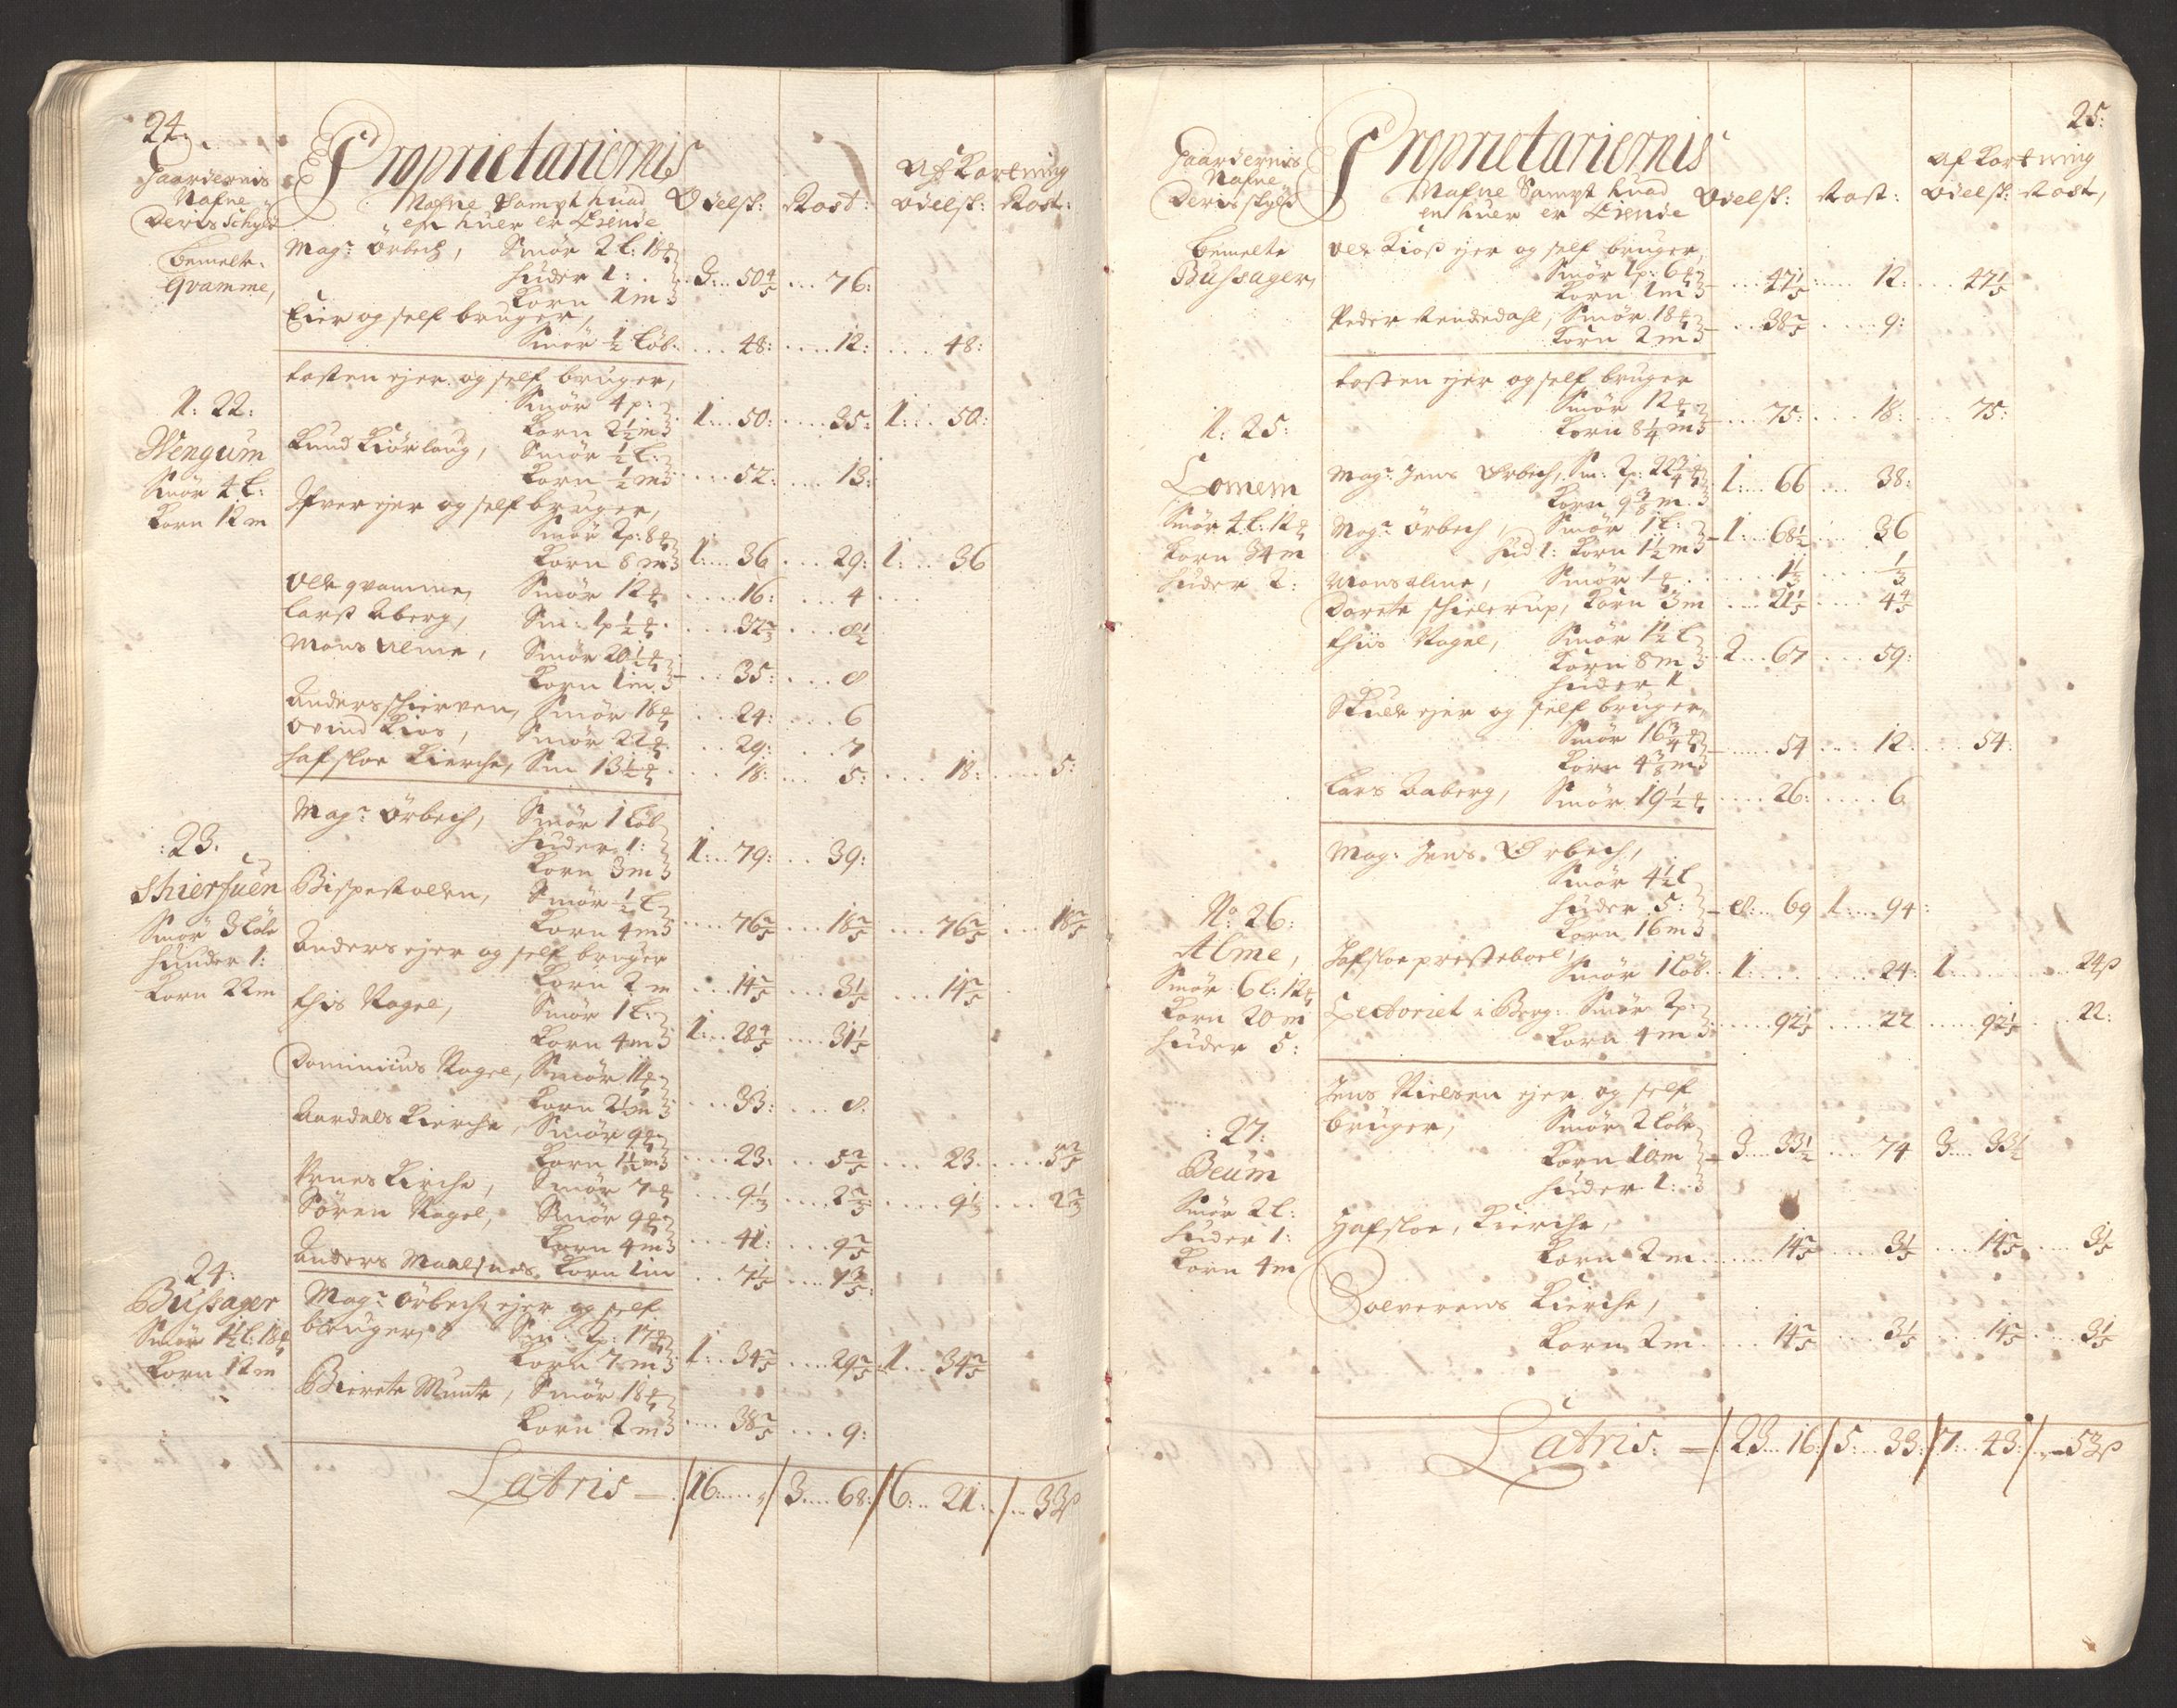 24
Gaardernis Nafne Deris Schyld
Proprietariernis
Nafne Sampt huad en huer er Eiende
Odelsk: Rost:
Afkortning
odelsk: Rost:
bemelte. Qvamme,
Mag: Örbech, Smör 2 l: 18
huder 1:
Korn 1 m 3: 50 4/5 76:
Eier og self bruger,
Smör 1/2 löb. 48: 12: 48:
N: 22:
Wengum
Smör 4 l:
Korn 12 m
tosten ejer og self bruger,
Smör 4 p:
Korn 2 1/2 m 1: 50: 35: 1: 50:
Knud Kiörlaug, Smör 1/2 l:
Korn 1/2 m 52: 13:
Ifver ejer og self bruger,
Smör 2 p: 8
Korn 8 m 1: 36 29: 1: 36
Ole qvamme, Smör 12 16: 4
Lars Aberg, Sm: 1 p 1/2 32 2/3 8 1/2
Mons Alme, Smör 20 1/2
Korn 1 m 35: 8
Anders schierven, Smör 18 24: 6
ovind Kios, Smör 22 29: 7
hafsloe Kierche, Sm 13 1/2 18: 5: 18: 5:
:23.
Shierfuen
Smör 3 löb
huder 1:
Korn 22 m
Mag: Örbech, Smör 1 löb
huder 1:
Korn 3 m 1: 79: 39:
Bispestolen, Smör 1/2 l
Korn 4 m 76 2/5 18 2/5 76 2/5 18 2/5
Anders ejer og self bruger
Korn 2 m 14 2/5 3 1/5 14 2/5
this Nagel, Smör 1 l:
Korn 4 m 1: 28 4/5 31 1/5
Dominius Nagel, Smör 11
Korn 2 1/2 m 33: 8:
Aardals Kierche, Smör 9
Korn 1 1/2 m 23: 5 2/5 23 5 2/5
Urnes Kirche, Smör 7 9 1/3 2 2/3 9 1/3 2 2/3
Sören Nagel, Smör 9
Korn 4 m 41: 9 2/5
Anders Maalsnes, Korn 1 m 7 1/5 1 3/5
24:
Bussager
Smör 1 1/2 l: 18
Korn 12 m
Mag: Örbech, ejer og self
bruger, Sm: 2 p: 17
Korn 7 m 1: 34 2/5 29 2/5 1 34 2/5
Bierete Munte, Smör 18
Korn 2 m 38 2/5 9:
Latris — 16 3 68: 6: 21: 33 ß
25:
Gaardernis Nafne Deris skyld
Proprietariernis
Nafne Sampt huad en huer er Eiende
Odelsk: Rost:
Afkortning
odelsk: Rost,
bemelte Bussager,
Ole Kioss ejer og self bruger,
Smör 1 p: 6
Korn 1 m 47 1/5 12: 47 1/5
Peder Rendedahl, Smör 18
Korn 2 m 38 2/5 9:
N: 25:
Lomem
Smör 4 l: 12
Korn 34 m
huder 2:
tosten ejer og self bruger
Smör 12
Korn 8 1/4 m 75: 18: 75:
Mag: Jens Ørbech, Sm: 2 p: 22 3/4
Korn 9 3/8 m 1: 66 38:
Mag: Örbech, Smör 1 l:
hud 1: Korn 1 1/2 m 1: 68 1/2 36
Mons alme, Smör 1 1 1/3 1/3
Dorete schielerup, Korn 3 m 21 1/5 4 4/5
thiis Nagel, Smör 1 1/2 l
Korn 8 m 2 67 59:
huder 1
Skule ejer og self bruger,
Smör 16 3/4
Korn 4 3/8 m 54 12 54:
Lars Aaberg, Smör 19 1/2 26: 6
No: 26:
Alme,
Smör 6 l: 12
Korn 20 m
huder 5:
Mag: Jens Ørbech,
Smör 4 1/2 l
huder 5:
Korn 16 m 8: 69 1: 94:
Hafsloe presteboel,
Smör 1 löb 1: 24: 1 24 ß
Lectoriet i Berg: Smör 2 p:
Korn 4 m 92 1/5 22 92 1/5 22:
:27:
Beum
Smör 2 l:
huder 1:
Korn 4 m
Jens Nielsen ejer og self
bruger, Smör 2 löb
Korn 10 m 3 33 1/2 74 3 33 1/2
huder 1:
Hafsloe, Kierche,
Korn 2 m 14 2/5 3 1/5 14 2/5 3 1/5
Solverens Kierche,
Korn 2 m 14 2/5 3 1/5 14 2/5 3 1/5
Latris: — 23 16: 5: 33: 7: 43: 53 ß